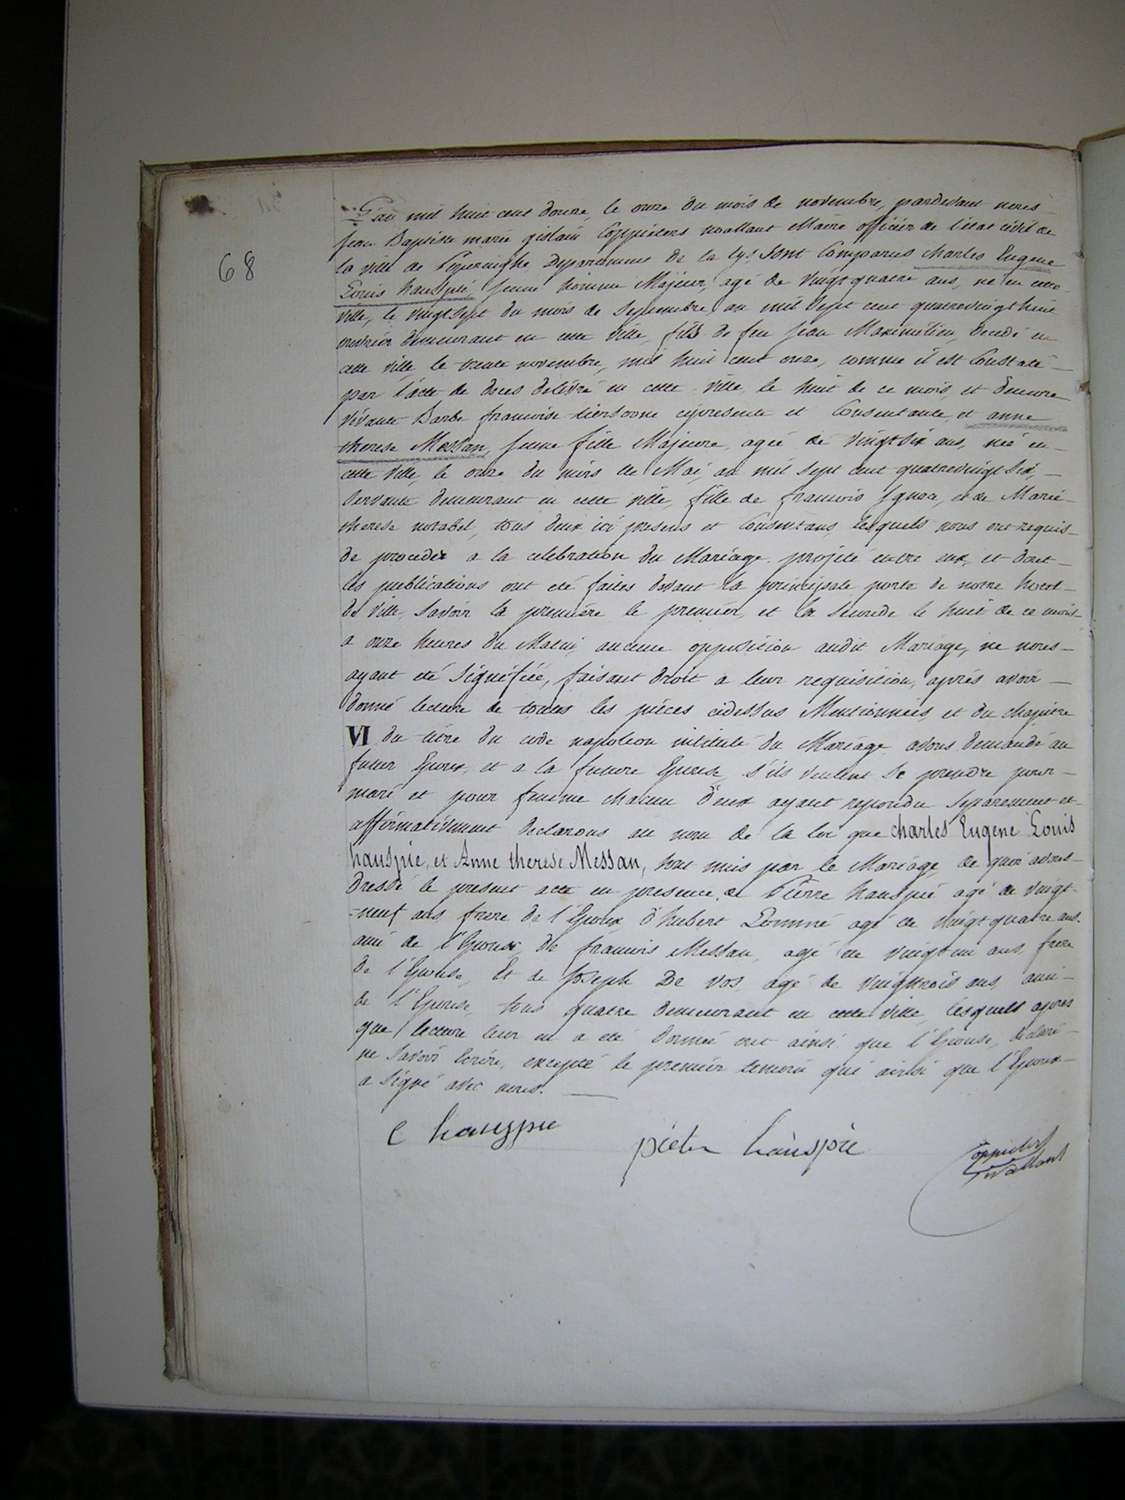 68
L'an mil huit cent douze, le onze du mois de novembre, pardevant nous
Jean Baptiste marie gislain Coppieters wallant Maire officier de l'état civil de
la ville de Poperinghe Departement de la Lys sont Comparus Charles Eugene
Louis hauspie jeune homme Majeur, agé de vingtquatre ans, né en cette
ville, le vingtsept du mois de septembre an mil sept cent quatrevingt huit
demeurant en cette ville, fils de feu jean Maximilien, decedé en
cette ville, le trente novembre, mil huit cent onze, comme il est Constaté
par l'acte de deces delivré en cette ville le huit de ce mois, et d'encore
vivante Barbe francoise tiersoone cypresente et Consentante, et anne
therese Messan, jeune fille Majeure, agée de vingtsix ans, née en
cette ville, le onze du mois de Mai, an mil sept cent quatrevingt six,
servante demeurant en cette ville, fille de francois Ignace, et de Marie
therese notabel, tous deux ici presens et Consentans, lesquels nous ont requis
de proceder a la celebration du Mariage projeté entre eux, et dont
les publications ont été faites devant la principale porte de notre hotel
de ville, Savoir la première le premier, et la seconde le huit de ce mois
a onze heures du Matin, aucune opposition audit Mariage, ne nous
ayant été signifiée, faisant droit a leur requisition, après avoir
donné lecture de toutes les pièces cidessus Mentionnées, et du chapitre
VI du titre du code napoleon intitulé du Mariage avons demandé au
futur Epoux, et a la future Epouse, s'ils veulent se prendre pour
mari et pour femme chacun d'eux ayant repondu separement et
affirmativement declarons au nom de la loi que charles Eugene Louis
hauspie, et Anne therese Messan, sont unis par le Mariage, de quoi avons
dressé le present acte en presence de Pierre hauspie agé de vingt
neuf ans, frere de l'Epoux d'hubert agé de vingtquatre ans
ami de l'Epoux, de francois Messan, agé de vingt un ans, frere
de l'Epouse, Et de Joseph De vos, agé de vingttrois ans, ami
de l'Epouse, tous quatre demeurant en cette ville, lesquels apres
que lecture leur en a été donnée ont ainsi que l'Epouse, declaré
ne savoir ecrire, excepté le premier temoin qui ainsi que l'Epoux
a signé avec nous.
C hauspie
pieter hauspie
Coppieters
wallant